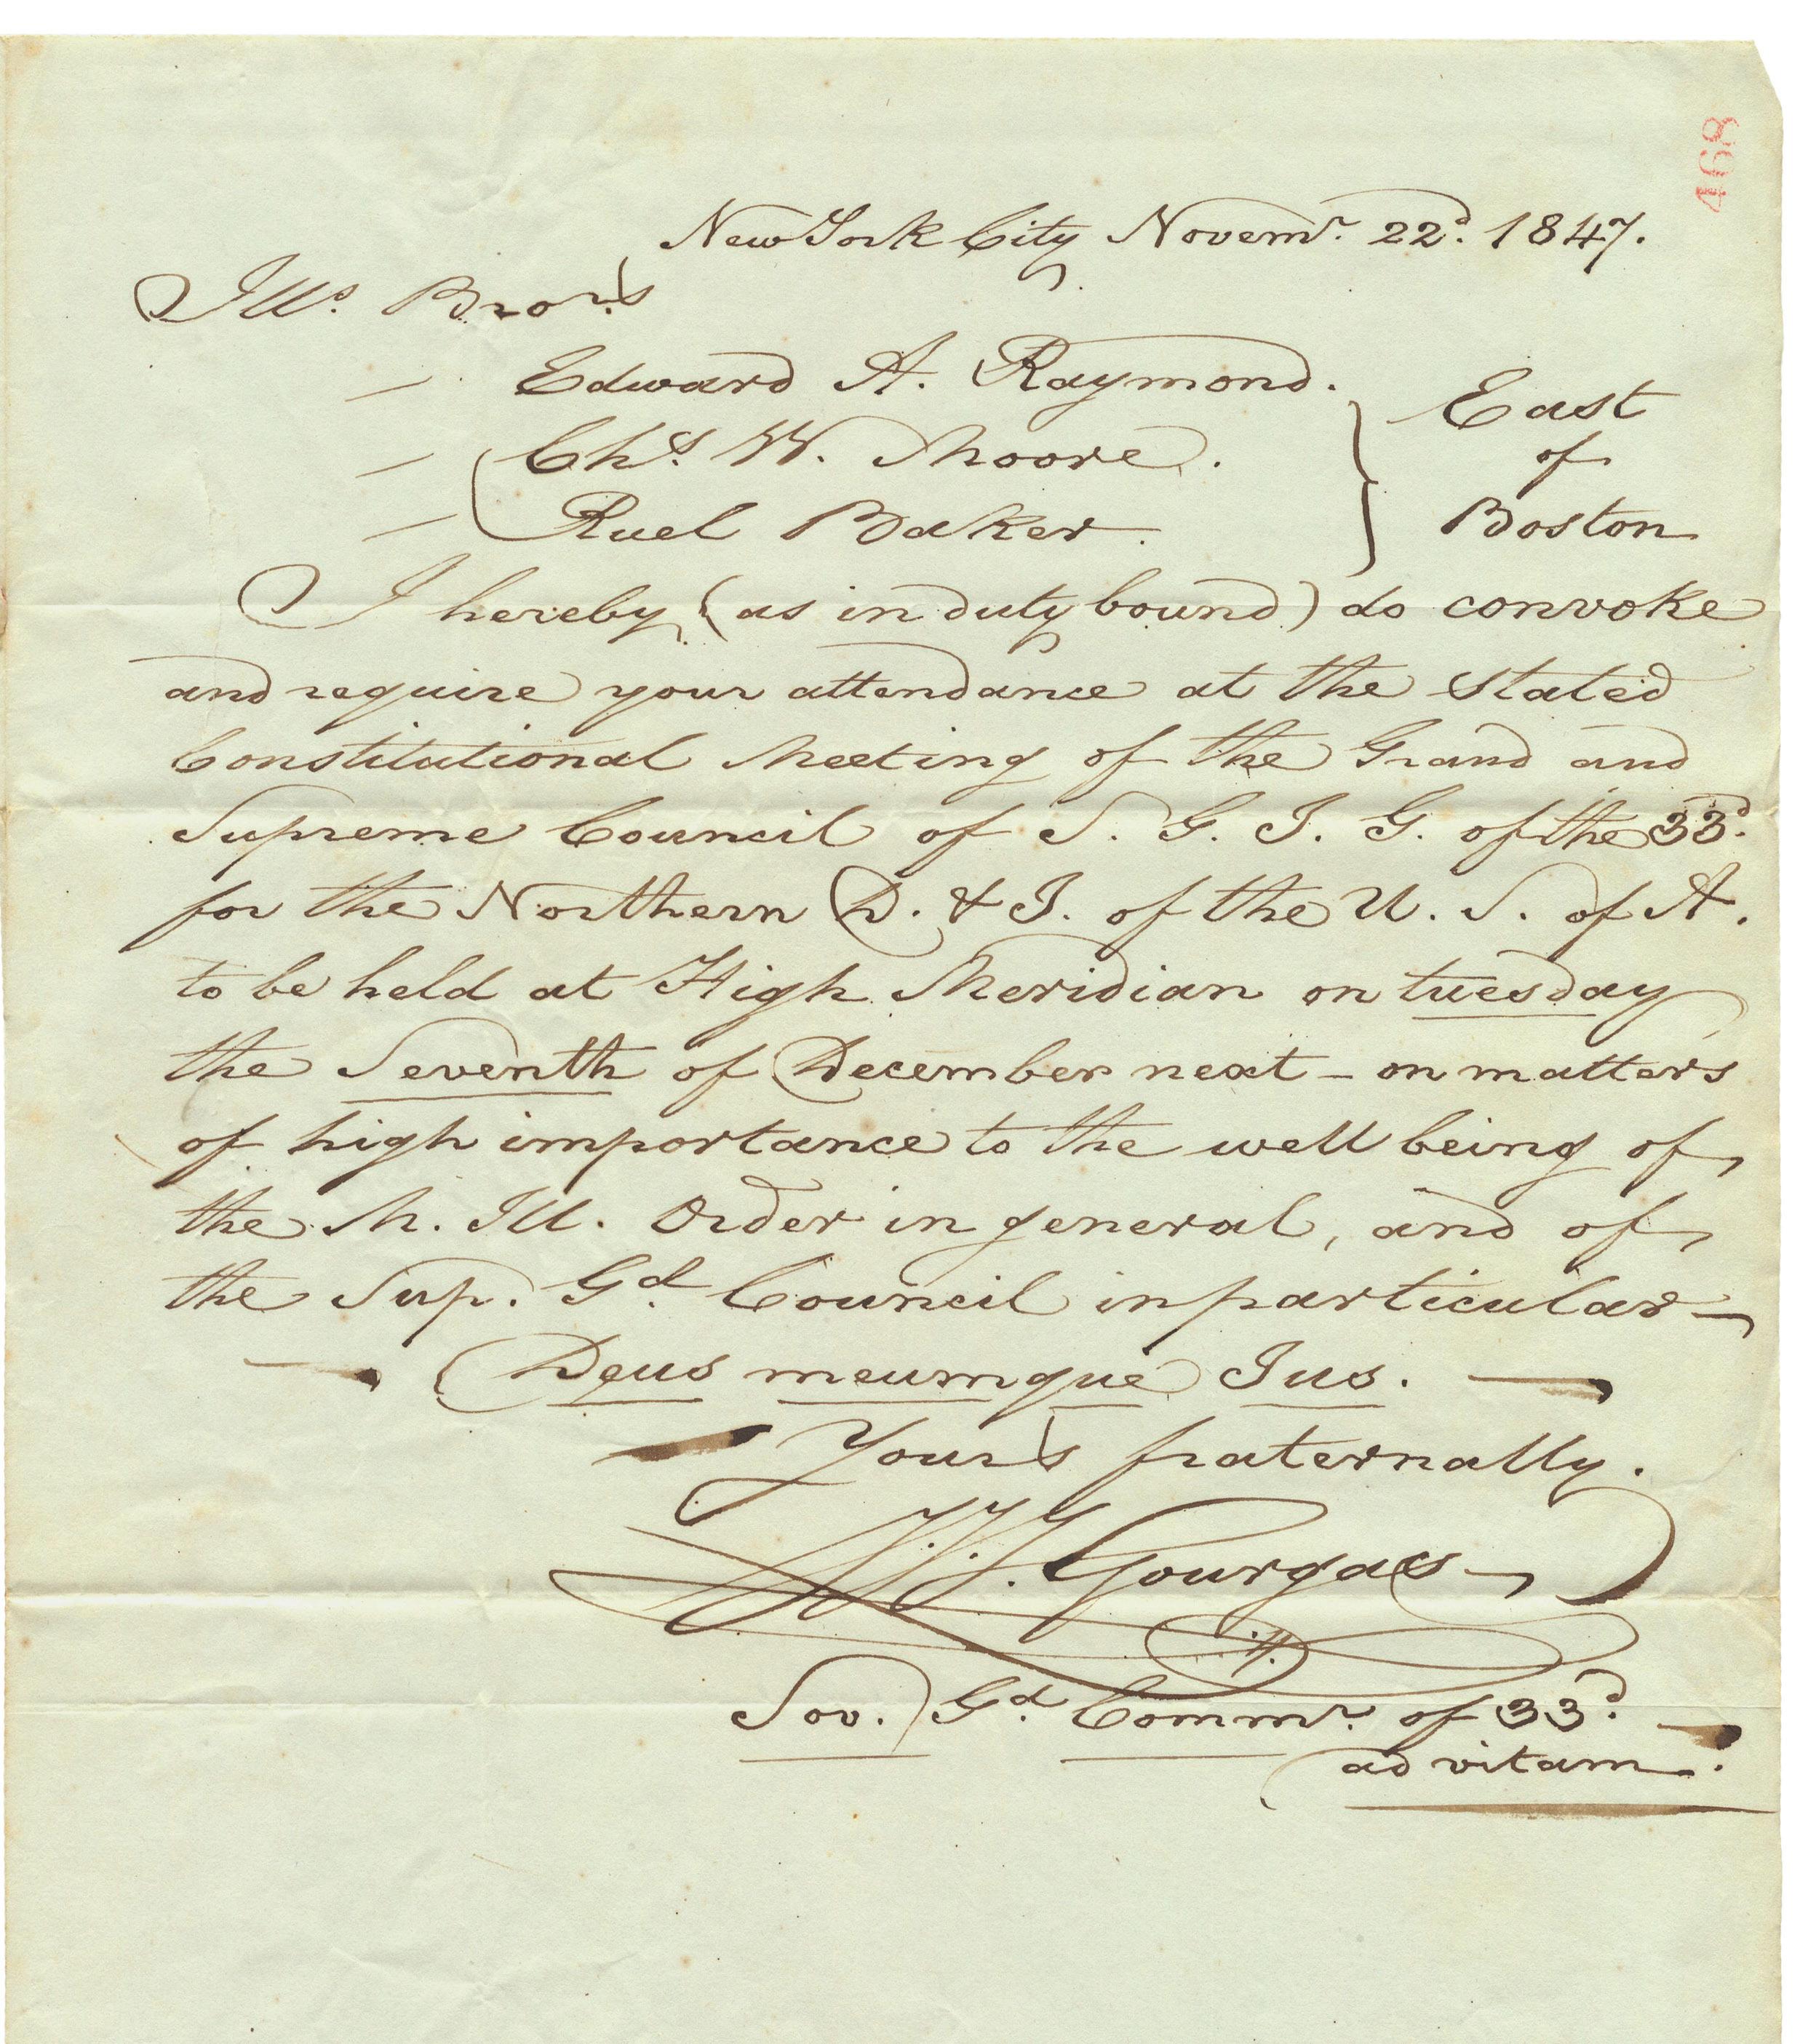 468
New York City Novemr. 22d. 1847.
Ills. Bror.s
— Edward A. Raymond.
— Chs. W. Moore.
— Ruel Baker.
} East
of
Boston
I hereby (as in duty bound) do convoke
and require your attendance at the stated
Constitutional Meeting of the Grand and
Supreme Council of S. G. I. G. of the 33d.
for the Northern D. & J. of the U. S. of A.
to be held at High Meridian on tuesday
the Seventh of December next – on matters
of high importance to the well being of
the M. Ill. Order in general, and of
the Sup. Gd. Council in particular —
— Deus meumque Jus. —
Yours fraternally.
J. J. J. Gourgas
Sov. Gd. Commr. of 33d. —
ad vitam.